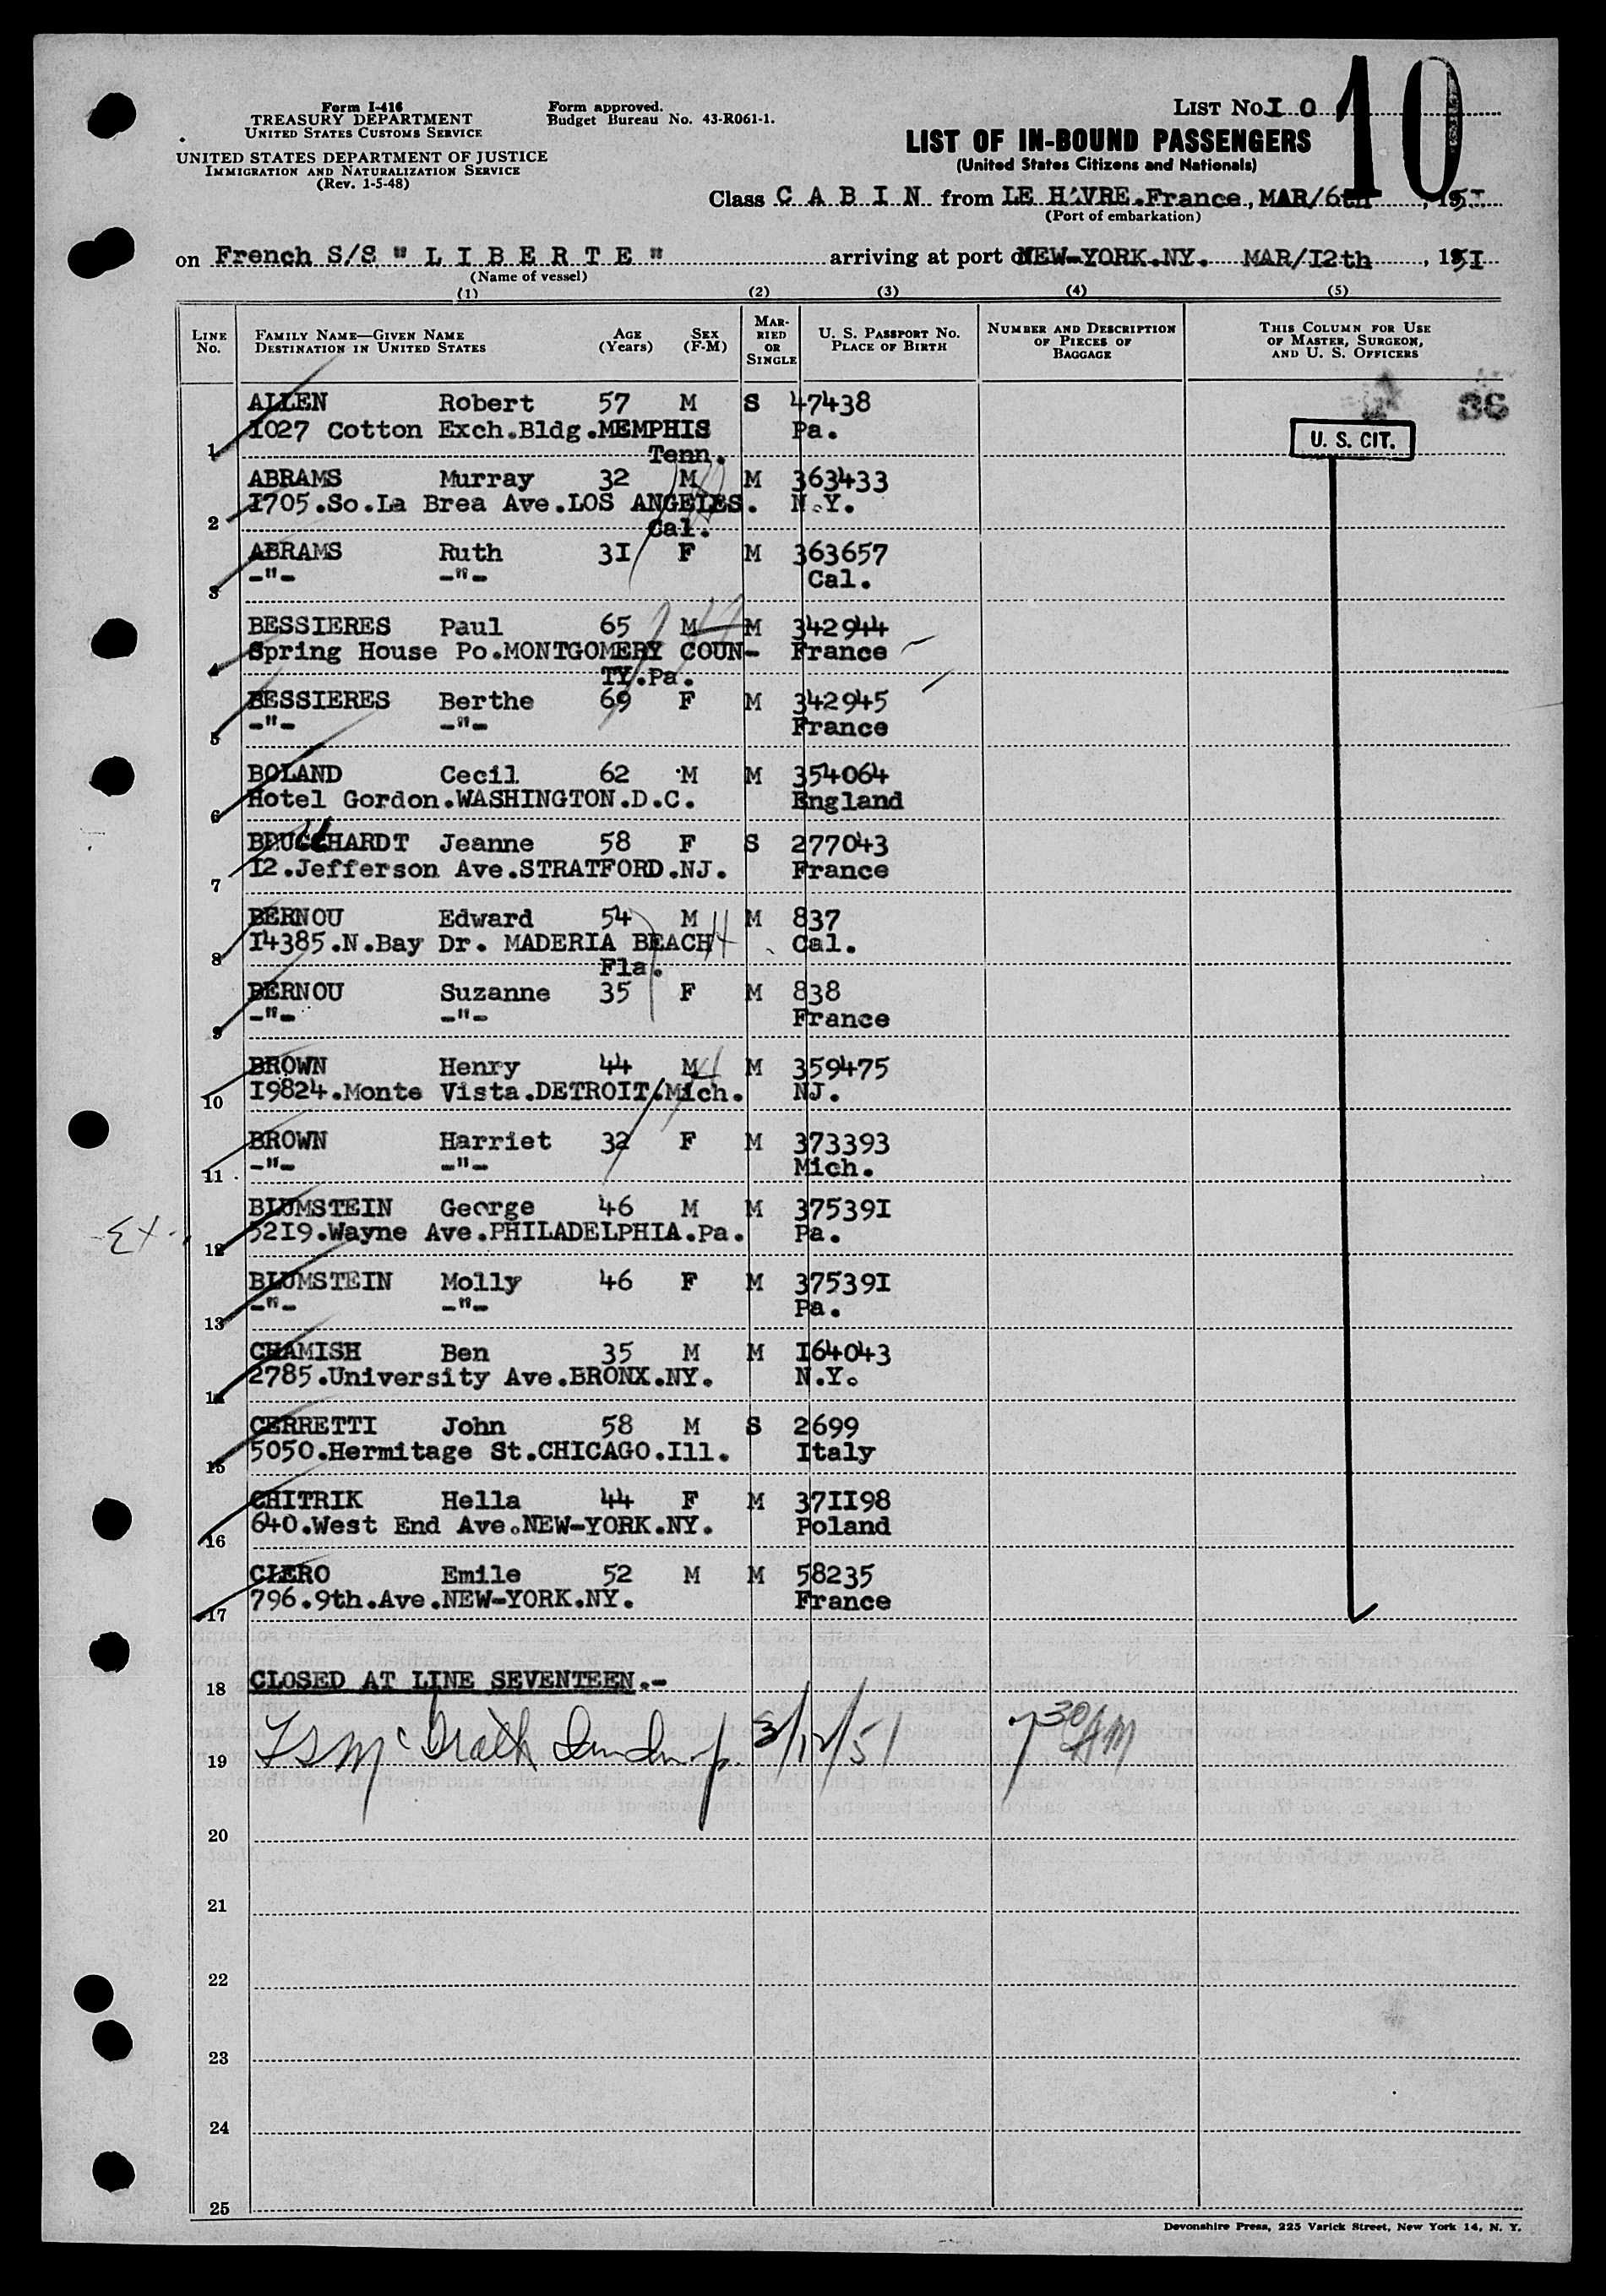 Form I-416
TREASURY DEPARTMENT
UNITED STATES CUSTOMS SERVICE
UNITED STATES DEPARTMENT OF JUSTICE
IMMIGRATION AND NATURALIZATION SERVICE
(Rev. 1-5-48)
Form approved.
Budget Bureau No. 43-R061-1.
LIST No. I 0
10
LIST OF IN-BOUND PASSENGERS
(United States Citizens and Nationals)
Class C A B I N from LE HAVRE.France, MAR/6th, 1951
(Port of embarkation)
on French S/S " L I B E R T E " arriving at port of NEW-YORK.NY. MAR/I2th, 195I
(Name of vessel)
(1) (2) (3) (4) (5)
LINE No.
FAMILY NAME—GIVEN NAME
DESTINATION IN UNITED STATES
AGE (Years)
SEX (F-M)
MARRIED OR SINGLE
U. S. PASSPORT NO.
PLACE OF BIRTH
NUMBER AND DESCRIPTION OF PIECES OF BAGGAGE
THIS COLUMN FOR USE OF MASTER, SURGEON, AND U. S. OFFICERS
36
U. S. CIT.
ALLEN Robert 57 M S 47438
1 I027 Cotton Exch.Bldg.MEMPHIS Pa.
Tenn.
ABRAMS Murray 32 M M 363433
2 I705.So.La Brea Ave.LOS ANGELES. N.Y.
Cal.
ABRAMS Ruth 3I F M 363657
3 -"- -"- Cal.
BESSIERES Paul 65 M M 342944
4 Spring House Po.MONTGOMERY COUN- France
TY.Pa.
BESSIERES Berthe 69 F M 342945
5 -"- -"- France
BOLAND Cecil 62 M M 354064
6 Hotel Gordon.WASHINGTON.D.C. England
Jeanne 58 F S 277043
7 I2.Jefferson Ave.STRATFORD.NJ. France
BERNOU Edward 54 M M 837
8 I4385.N.Bay Dr. MADERIA BEACH Cal.
Fla.
BERNOU Suzanne 35 F M 838
9 -"- -"- France
BROWN Henry 44 M M 359475
10 I9824.Monte Vista.DETROIT.Mich. NJ.
BROWN Harriet 32 F M 373393
11 -"- -"- Mich.
BLUMSTEIN George 46 M M 37539I
12 52I9.Wayne Ave.PHILADELPHIA.Pa. Pa.
BLUMSTEIN Molly 46 F M 37539I
13 -"- -"- Pa.
CHAMISH Ben 35 M M I64043
14 2785.University Ave.BRONX.NY. N.Y.
CERRETTI John 58 M S 2699
15 5050.Hermitage St.CHICAGO.Ill. Italy
CHITRIK Hella 44 F M 37II98
16 640.West End Ave.NEW-YORK.NY. Poland
CLERO Emile 52 M M 58235
17 796.9th.Ave.NEW-YORK.NY. France
18 CLOSED AT LINE SEVENTEEN.-
19 McGrath 3/12/51 7 30 AM
20
21
22
23
24
25
Devonshire Press, 225 Varick Street, New York 14, N. Y.